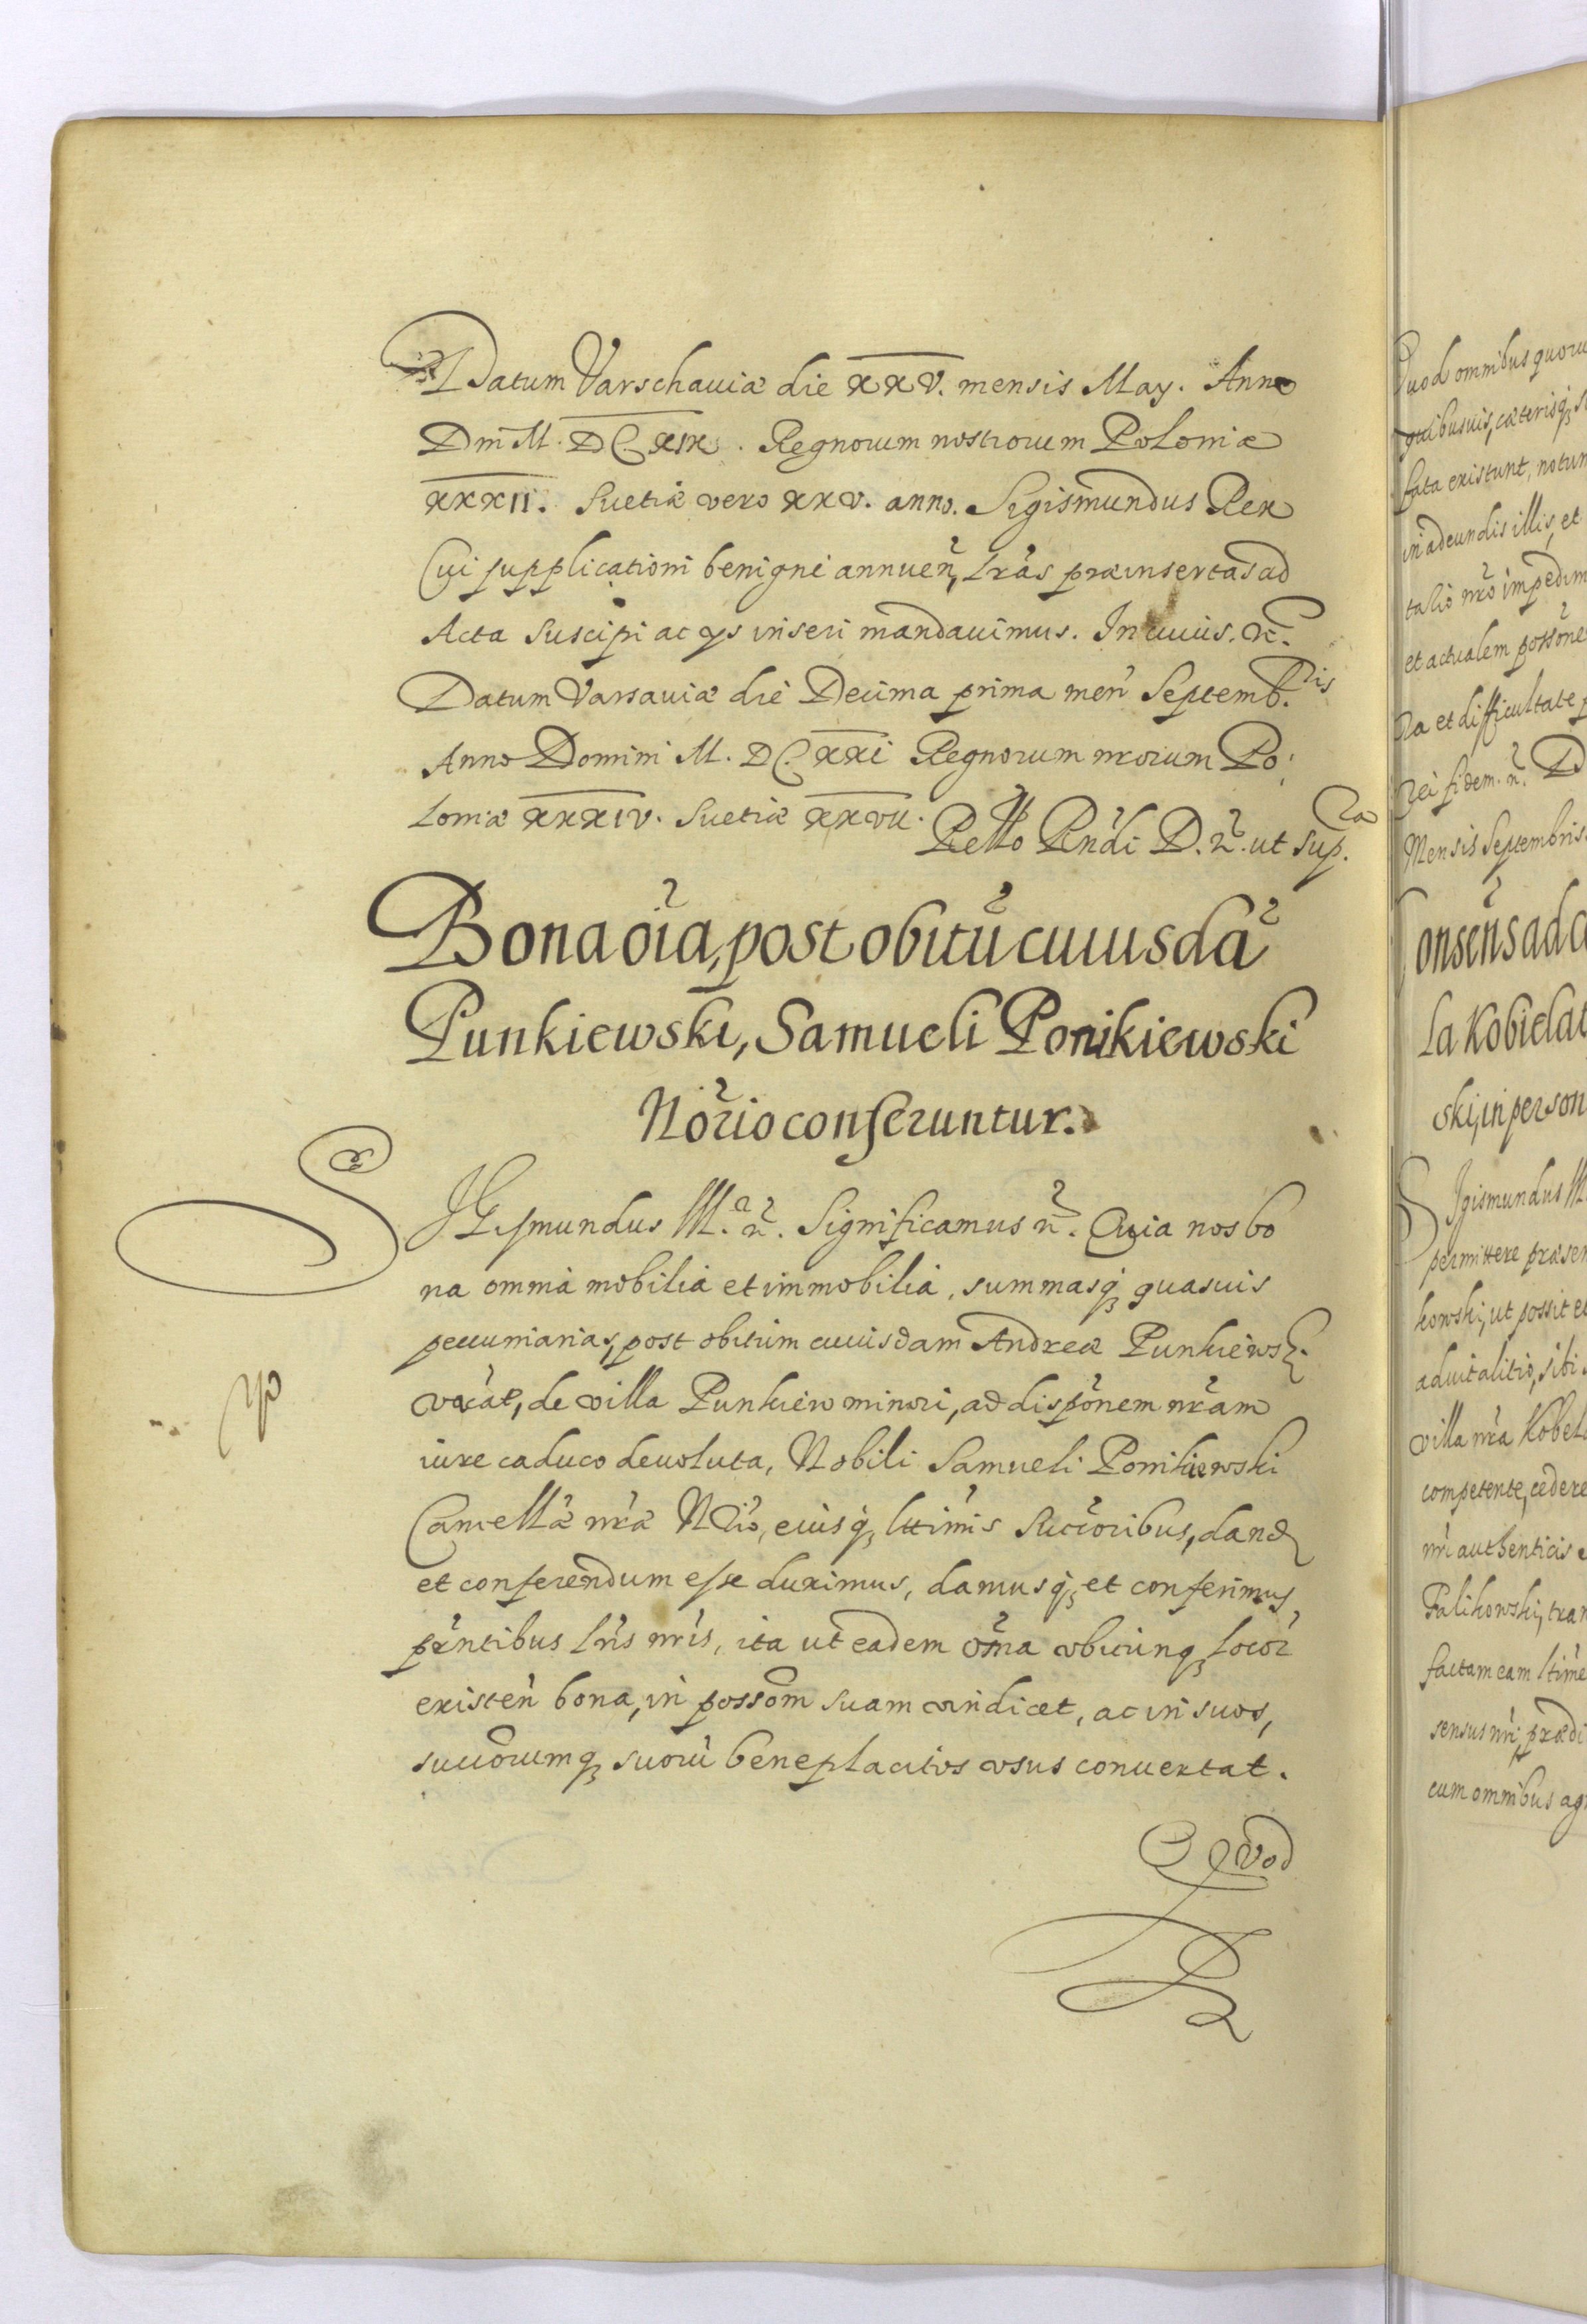 Datum Varschauiæ die XXV. mensis May. Anno
Dni M. DC. XIX. Regnorum nostrorum Poloniæ
XXXII. Suetiæ vero XXV. anno. Sigismundus Rex
Cui supplicationi benigne annuen̄, l̄ras præinsertas ad
Acta suscipi ac ys inseri mandauimus. In cuius. &c.
Datum Varsauiæ die Decima prima men̄ Septemb.ris
Anno Domini M. DC. XXI Regnorum nrorum Po:
loniæ XXXIV. Suetiæ XXVII.
R̄do P̄ndi D. n̄. ut sup.ra
Bona oīa, post obitū cuiusdā
Punkiewski, Samueli Ponikiewski
Nōrio conferuntur.
SIGismundus III. &c. Significamus &c. Quia nos bo
na omnia mobilia et immobilia, summasq; quasuis
pecuniarias, post obitum cuiusdam Andreæ Punkiews:
de villa Punkiew minori, ad dispōnem nrām
iure caduco deuoluta, Nobili Samueli Ponikiewski
Cancellā nrā Nrio, eiusq; lttimis succōribus, dand
et conferendum esse duximus, damusq; et conferimus
prn̄tibus lr̄is nr̄is, ita ut eadem om̄a vbicunq; locor̄
existen̄ bona, in possōm suam vindicet, ac in suos,
succōrumq; suorū beneplacitos vsus conuertat.
Quod
Quod omnibus quoru
quibusuis, cæterisq; s
fata existunt, notum
in adeundis illis, et
talio nrō impedim
et actualem possōne
ra et difficultate p
rei fidem. &c. D
Mensis Septembris.
Consens̄ ad c
la Kobiela
ski, in person
SIgismundus III
permittere præsen
kowski, ut possit e
aduitalitio, sibi
villa nrā Kobel
competente, cedere
nri authenticis
Falikowski, tran
factam eam ltime
sensus nri, prædi
cum omnibus ag